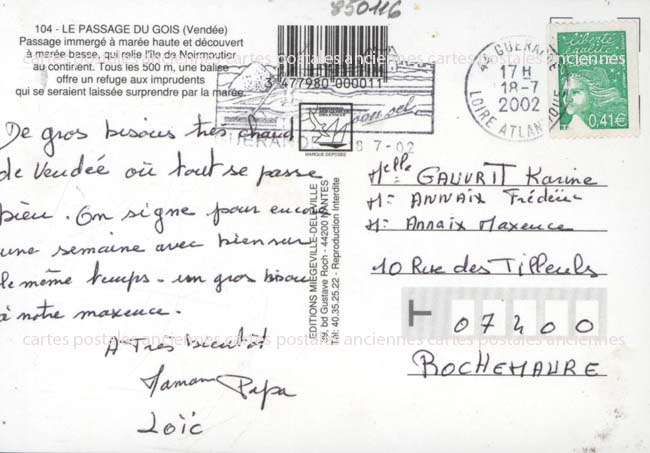 850116
104 - LE PASSAGE DU GOIS (Vendée)
Passage immergé à marée haute et découvert
à marée basse, qui relie l'île de Noirmoutier
au continent. Tous les 500 m, une balise
offre un refuge aux imprudents
qui se seraient laissée surprendre par la marée.
3 477980 000011
MARQUE DEPOSEE
EDITIONS MIEGEVILLE-DELEVILLE
39, bd Gustave Roch - 44200 NANTES
Tél. 40.35.25.22 - Reproduction Interdite
son sel
GUERAN
8 7-02
44 GUERANDE
17 H
18-7
2002
LOIRE ATLANTIQUE
liberté
égalité
0,41€
De gros bisous très chaud
de Vendée où tout se passe
bien. On signe pour encore
une semaine avec bien sur
le même temps - un gros bisou
à notre maxence.
A Très bientôt
Maman Papa
Loïc
Melle GAUVRIT Karine
Mr ANNAIX Frédéric
Mr Annaix Maxence
10 Rue des Tilleuls
07400
ROCHEMAURE
cartes postales anciennes cartes postales anciennes cartes postales anciennes
cartes postales anciennes cartes postales anciennes cartes postales anciennes